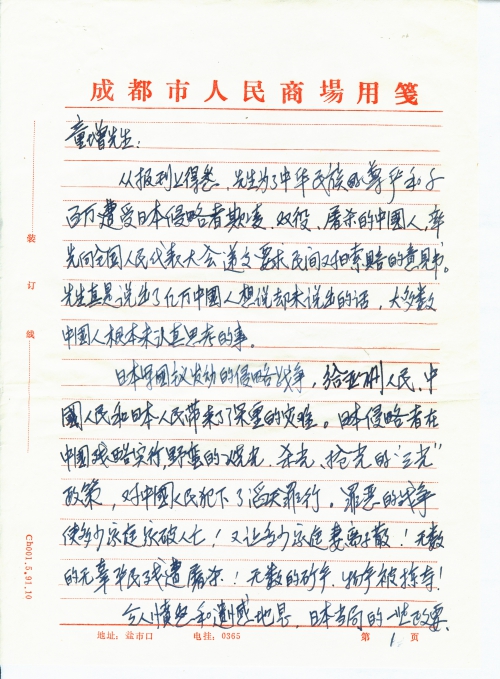 成都市人民商場用箋
童增先生：
从报刊上得悉，先生为了中华民族的尊严和千
百万遭受日本侵略者欺凌、奴役、屠杀的中國人，率
先向全国人民代表大会送交要求民间对日索赔的意見书。
先生真是说出了亿万中國人想说却未说出的话，大多数
中國人根本未认真思考的事。
日本军國主义发动的侵略战争，给亚洲人民、中
國人民和日本人民带来了深重的灾难。日本侵略者在
中國残酷实行野蛮的烧光、杀光、抢光的"三光"
政策，对中國人民犯下了滔天罪行。罪恶的战争
使多少家庭家破人亡！又让多少家庭妻离子散！无数
的无辜平民惨遭屠杀！无数的财产、物产被掠夺！
令人愤怒和遗憾地是，日本当局的一些政要，
装订线
Cb001.5.91.10
地址：盐市口 电挂：0365 第 1 页